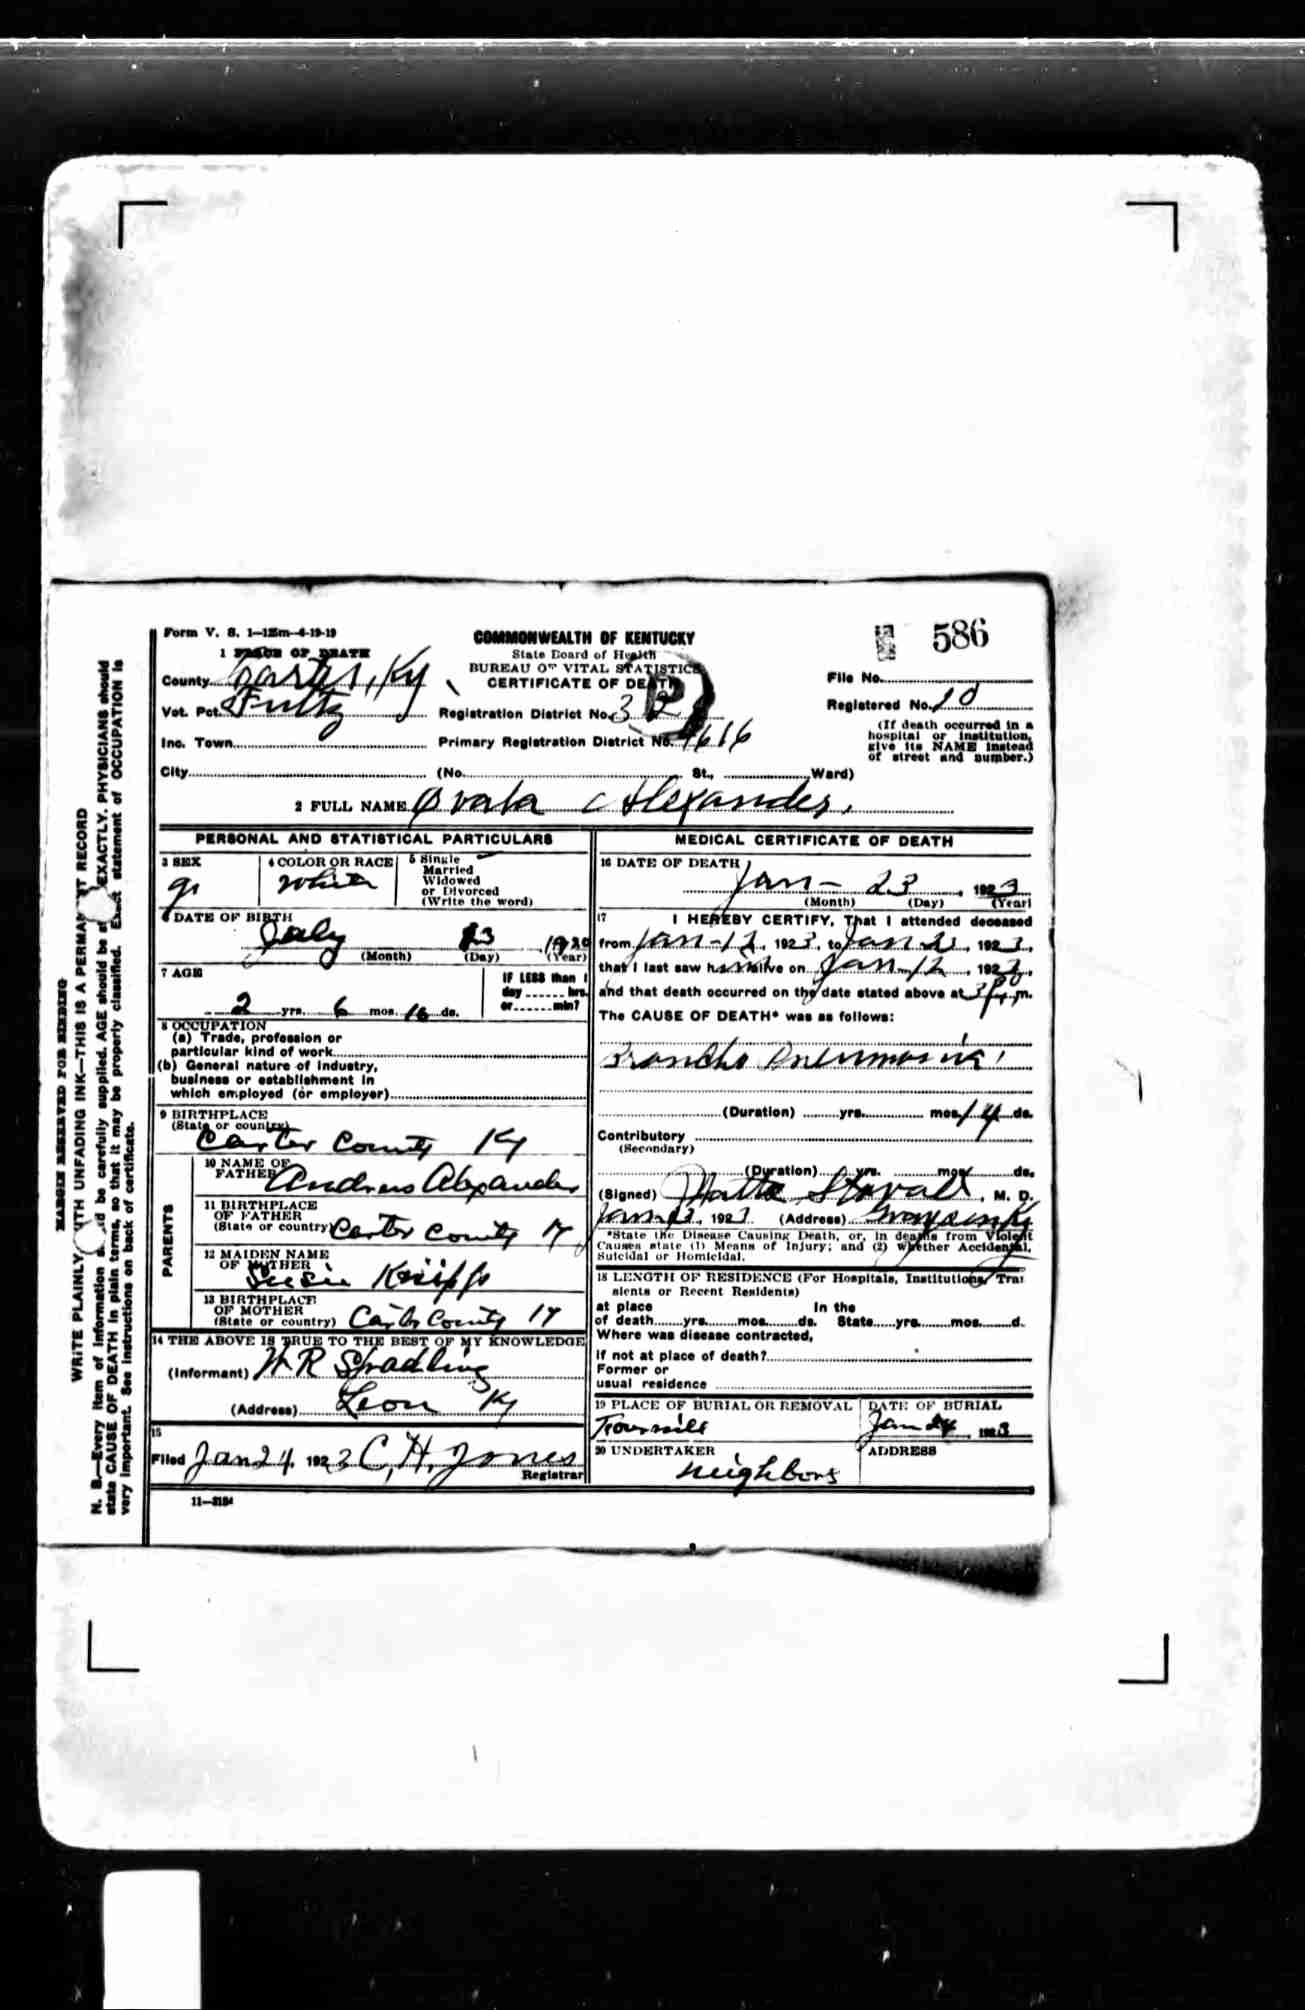 Form V. S. 1—125m—4-19-19
COMMONWEALTH OF KENTUCKY
State Board of Health
BUREAU OF VITAL STATISTICS
CERTIFICATE OF DEATH
586
1 PLACE OF DEATH
County Carter, Ky
Vot. Pct. Fultz
Inc. Town
City
Registration District No.
Primary Registration District No. 4616
(No. St., Ward)
File No.
Registered No. 10
(If death occurred in a
hospital or institution,
give its NAME instead
of street and number.)
2 FULL NAME Ovala Alexander
PERSONAL AND STATISTICAL PARTICULARS
3 SEX
4 COLOR OR RACE
White
5 Single
Married
Widowed
or Divorced
(Write the word)
6 DATE OF BIRTH
July 23 1920
(Month) (Day) (Year)
7 AGE
2 yrs. 6 mos. ds.
IF LESS than 1
day hrs.
or min?
8 OCCUPATION
(a) Trade, profession or
particular kind of work
(b) General nature of industry,
business or establishment in
which employed (or employer)
9 BIRTHPLACE
(State or country)
Carter County Ky
PARENTS
10 NAME OF
FATHER Andrew Alexander
11 BIRTHPLACE
OF FATHER
(State or country) Carter County Ky
12 MAIDEN NAME
OF MOTHER
Susie Knipp
13 BIRTHPLACE
OF MOTHER
(State or country) Carter County Ky
14 THE ABOVE IS TRUE TO THE BEST OF MY KNOWLEDGE
(Informant) W R Spradling
(Address) Leon Ky
15
Filed Jan 24, 1923 C. H. Jones
Registrar
11—3184
MEDICAL CERTIFICATE OF DEATH
16 DATE OF DEATH
Jan - 23, 1923
(Month) (Day) (Year)
17 I HEREBY CERTIFY, That I attended deceased
from Jan - 12, 1923, to Jan, 1923,
that I last saw h alive on Jan 12, 1923,
and that death occurred on the date stated above at 3 P. m.
The CAUSE OF DEATH* was as follows:
Broncho Pneumonia
(Duration) yrs. mos. 14 ds.
Contributory
(Secondary)
(Duration) yrs. mos. ds.
(Signed) Stovall, M. D.
Jan 23, 1923 (Address) Grayson Ky
*State the Disease Causing Death, or, in deaths from Violent
Causes state (1) Means of Injury; and (2) whether Accidental,
Suicidal or Homicidal.
18 LENGTH OF RESIDENCE (For Hospitals, Institutions, Tran
sients or Recent Residents)
at place In the
of death yrs. mos. ds. State yrs. mos. d.
Where was disease contracted,
if not at place of death?
Former or
usual residence
19 PLACE OF BURIAL OR REMOVAL
DATE OF BURIAL
Jan 24, 1923
20 UNDERTAKER
neighbors
ADDRESS
MARGIN RESERVED FOR BINDING
WRITE PLAINLY WITH UNFADING INK—THIS IS A PERMANENT RECORD
N. B.—Every item of information should be carefully supplied. AGE should be stated EXACTLY. PHYSICIANS should
state CAUSE OF DEATH in plain terms, so that it may be properly classified. Exact statement of OCCUPATION is
very important. See instructions on back of certificate.